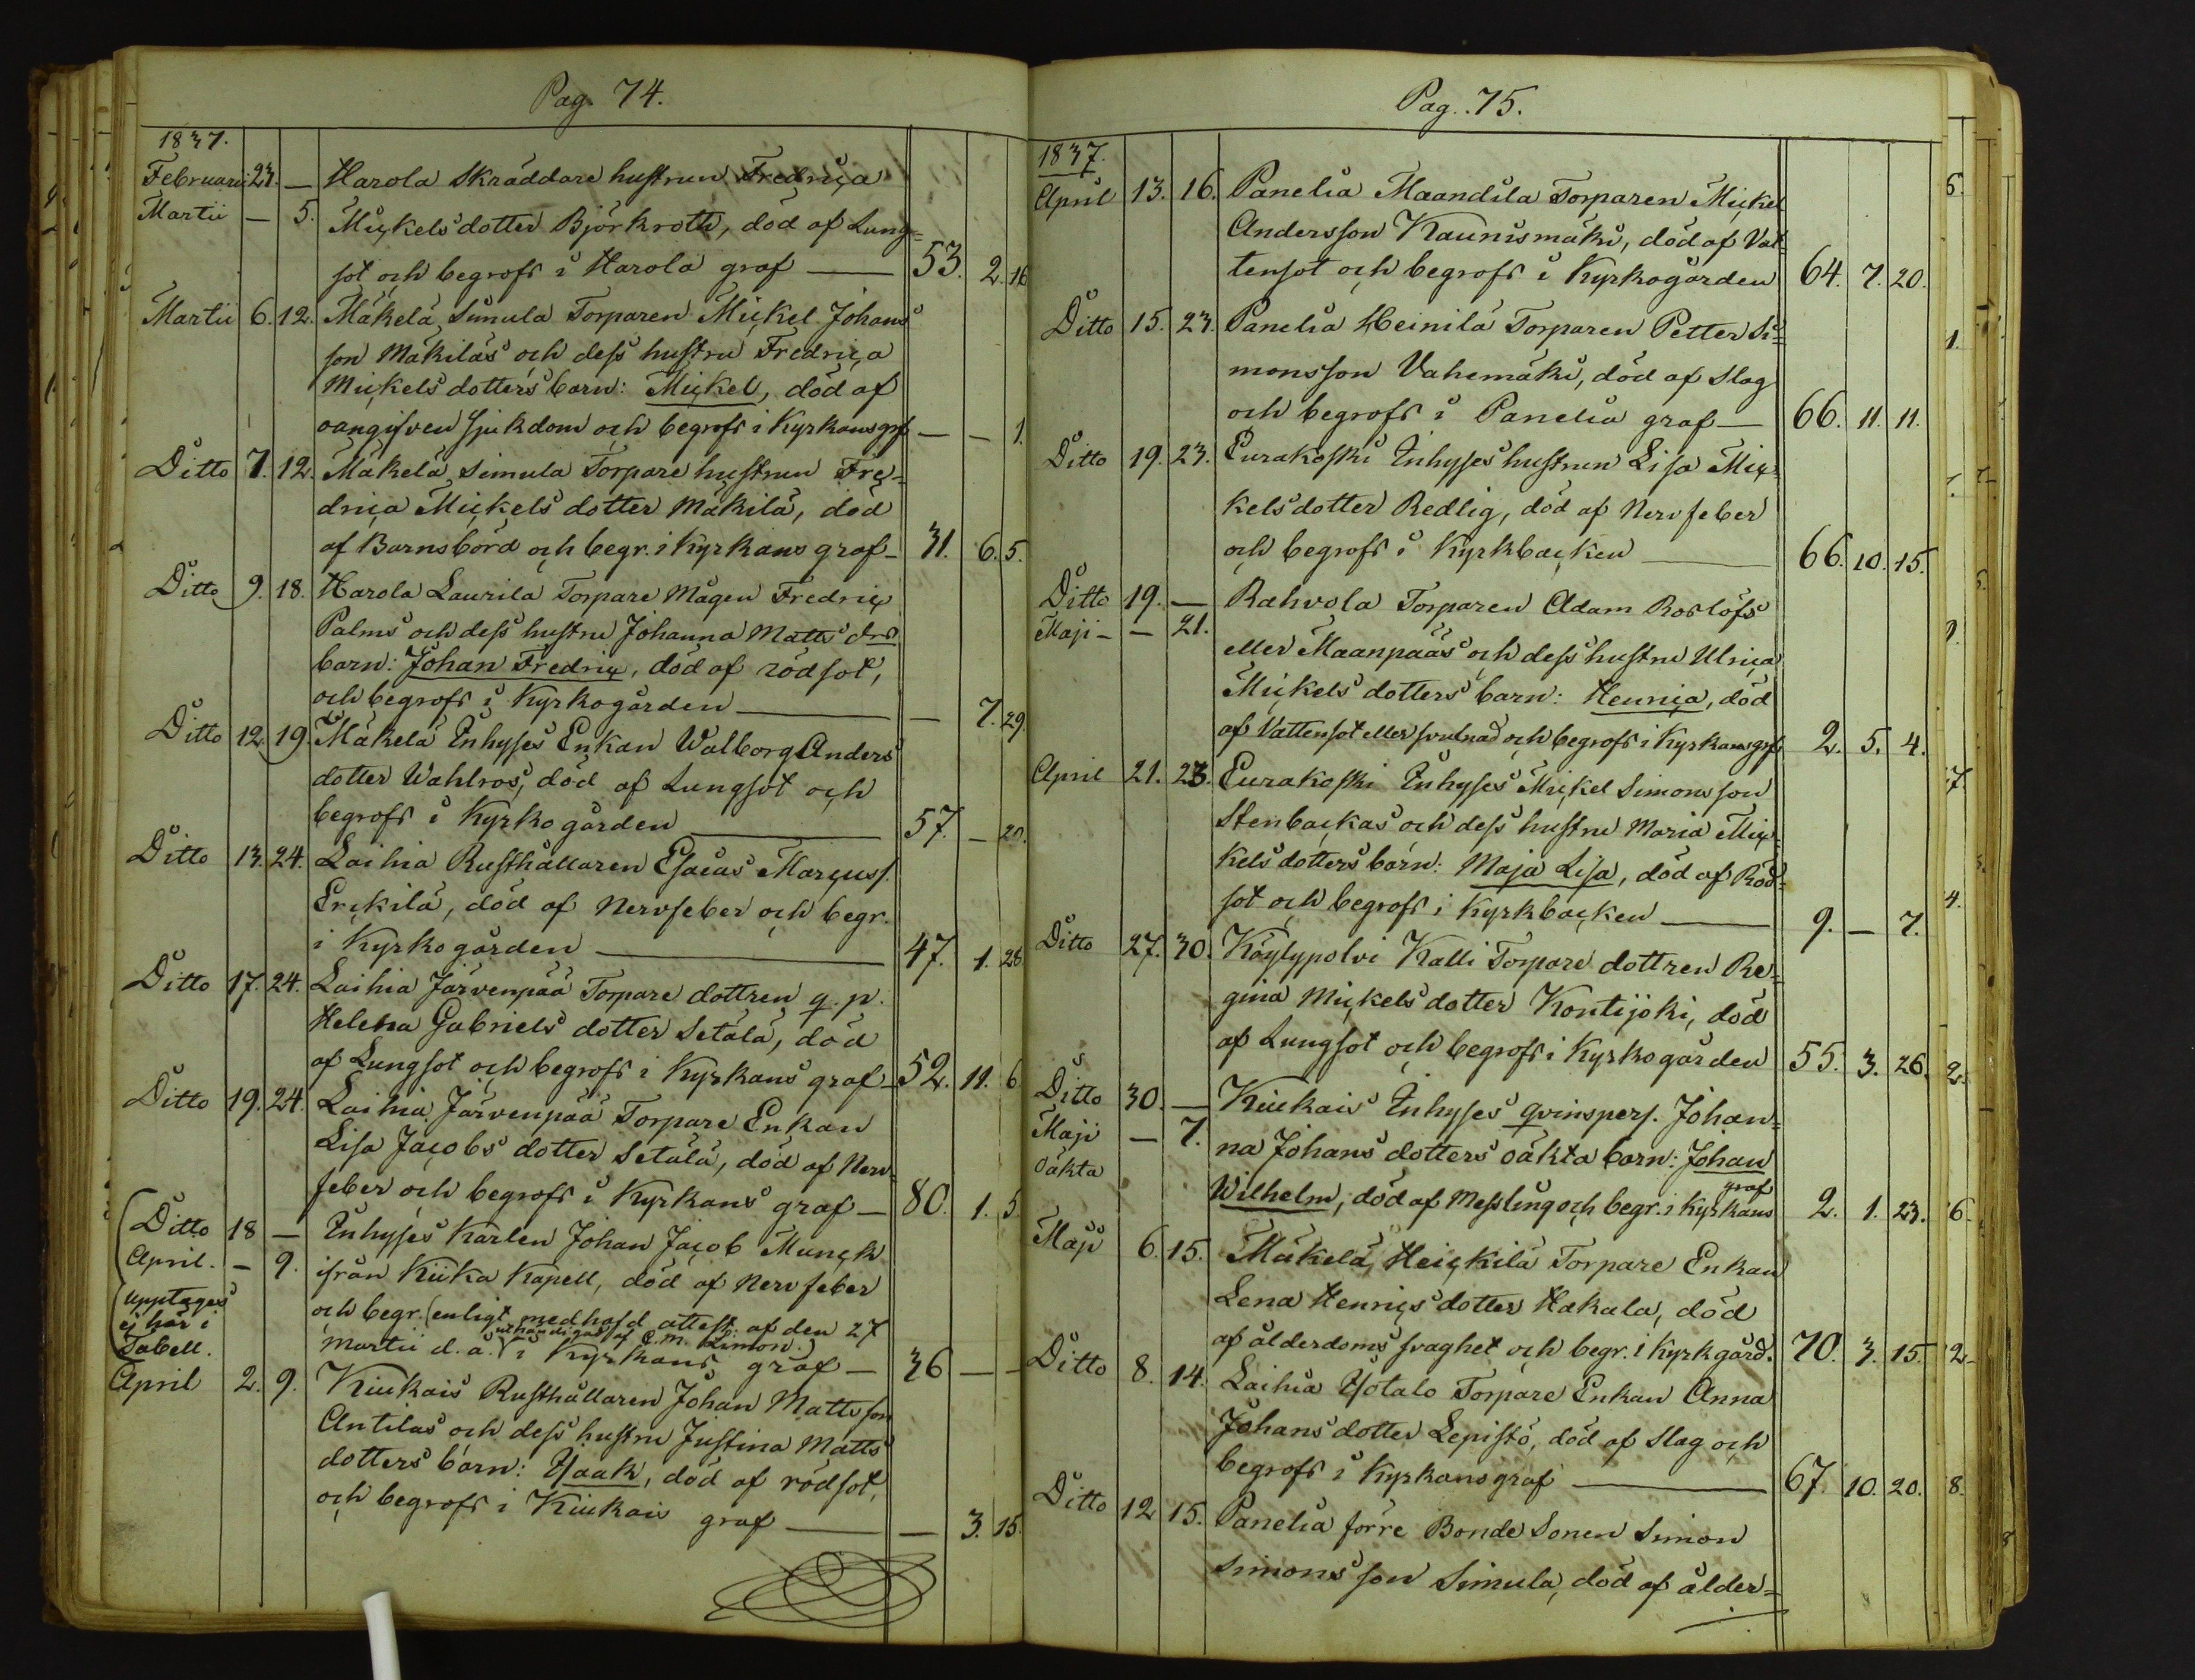 Pag. 74.
1837.
Februarii 23. — Harola Skräddare hustrun Fredrica
Martii — 5. Mickels dotter Björkroth, död af Lung-
sot och begrofs i Harola graf — 53. 2. 16
Martii 6. 12. Mäkelä Simula Torparen Mickel Johans
son Mäkiläs och dess hustru Fredrica
Mickels dotters barn: Mickel, död af
oangifven sjukdom och begrofs i Kyrkans grf — — 1.
Ditto 7. 12. Mäkelä Simula Torpare hustrun Fre-
drica Mickels dotter Mäkilä, död
af Barnsbörd och begr. i Kyrkans graf — 31. 6. 5.
Ditto 9. 18. Harola Laurila Torpare Mågen Fredric
Palms och dess hustru Johanna Matts drs
barn: Johan Fredric, död af rödsot,
och begrofs i Kyrkogården — — 7. 29.
Ditto 12. 19. Mäkelä Inhyses Enkan Walborg Anders
dotter Wahlros, död af Lungsot och
begrofs i Kyrkogården 57. — 20.
Ditto 13. 24. Laihia Rusthållaren Esaias Marcuss.
Erckilä, död af Nervfeber och begr.
i Kyrkogården — 47. 1. 28.
Ditto 17. 24. Laihia Järvenpää Torpare dottren q. p.
Helena Gabriels dotter Setälä, död
af Lungsot och begrofs i Kyrkans graf 52. 11. 6.
Ditto 19. 24. Laihia Järvenpää Torpare Enkan
Lisa Jacobs dotter Setälä, död af Nerv-
feber och begrofs i Kyrkans graf — 80. 1. 5.
(Ditto 18 — Inhyses Karlen Johan Jacob Munck
(April. — 9. ifrån Kiika Kapell, död af Nervfeber
(upptages och begr. (enligt medhafd attest af den 27
ej här i Martii d. å. uthändigad af C. M. Limon.) i Kyrkans graf — 36 — —
Tabell.
April 2. 9. Kiukais Rusthållaren Johan Mattsson
Antilas och dess hustru Justina Matts
dotters barn: Isaak, död af rödsot,
och begrofs i Kiukais graf — — 3. 15.
Pag. 75.
1837.
April 13. 16. Panelia Maandila Torparen Mickel
Andersson Kaunismäki, död af Vat-
tensot och begrofs i Kyrkogården 64. 7. 20.
Ditto 15. 23. Panelia Heinilä Torparen Petter Si-
monsson Vahemäki, död af Slag
och begrofs i Panelia graf — 66. 11. 11.
Ditto 19. 23. Eurakoski Inhyses hustrun Lisa Mic-
kels dotter Redlig, död af Nervfeber
och begrofs i Kyrkbacken — 66. 10. 15.
Ditto 19. — Rahvola Torparen Adam Roslöfs
Maji — — 21. eller Maanpääs och dess hustru Ulrica
Mickels dotters barn: Henrica, död
af Vattensot eller svulnad och begrofs i Kyrkans grf 2. 5. 4.
April 21. 23. Eurakoski Inhyses Mickel Simonsson
Stenbackas och dess hustru Maria Mic-
kels dotters barn: Maja Lisa, död af Röd-
sot och begrofs i Kyrkbacken — 9. — 7.
Ditto 27. 30. Köylypolvi Kalli Torpare dottren Re-
gina Mickels dotter Kontijoki, död
af Lungsot och begrofs i Kyrkogården 55. 3. 26.
Ditto 30. — Kiukais Inhyses qvinspers. Johan-
Maji — 7. na Johans dotters oäkta barn: Johan
oäkta
Wilhelm, död af Messling och begr. i Kyrkans graf 2. 1. 23.
Maji 6. 15. Mäkelä, Heickilä Torpare Enkan
Lena Henrics dotter Hakala, död
af ålderdoms svaghet och begr. i Kyrkgård. 70. 3. 15.
Ditto 8. 14. Laihia Isotalo Torpare Enkan Anna
Johans dotter Lepistö, död af Slag och
begrofs i Kyrkans graf — 67. 10. 20.
Ditto 12 15. Panelia förre Bonde Sonen Simon
Simonsson Simula, död af ålder-